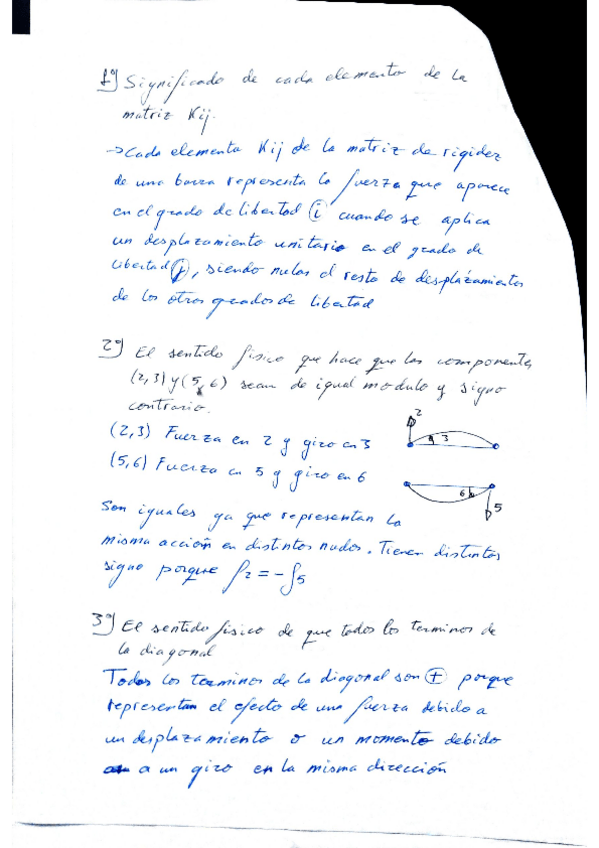 1º) Significado de cada elemento de la
matriz Kij.
→ Cada elemento Kij de la matriz de rigidez
de una barra representa la fuerza que aparece
en el grado de libertad i cuando se aplica
un desplazamiento unitario en el grado de
libertad j, siendo nulas el resto de desplazamientos
de los otros grados de libertad
2º) El sentido físico que hace que las componentes
(2,3) y (5,6) sean de igual modulo y signo
contrario.
(2,3) Fuerza en 2 y giro en 3
(5,6) Fuerza en 5 y giro en 6
2
3
6
5
Son iguales ya que representan la
misma acción en distintos nudos. Tienen distintos
signo porque f2 = -f5
3º) El sentido físico de que todos los terminos de
la diagonal
Todos los terminos de la diagonal son + porque
representan el efecto de una fuerza debido a
un desplazamiento o un momento debido
a un giro en la misma dirección